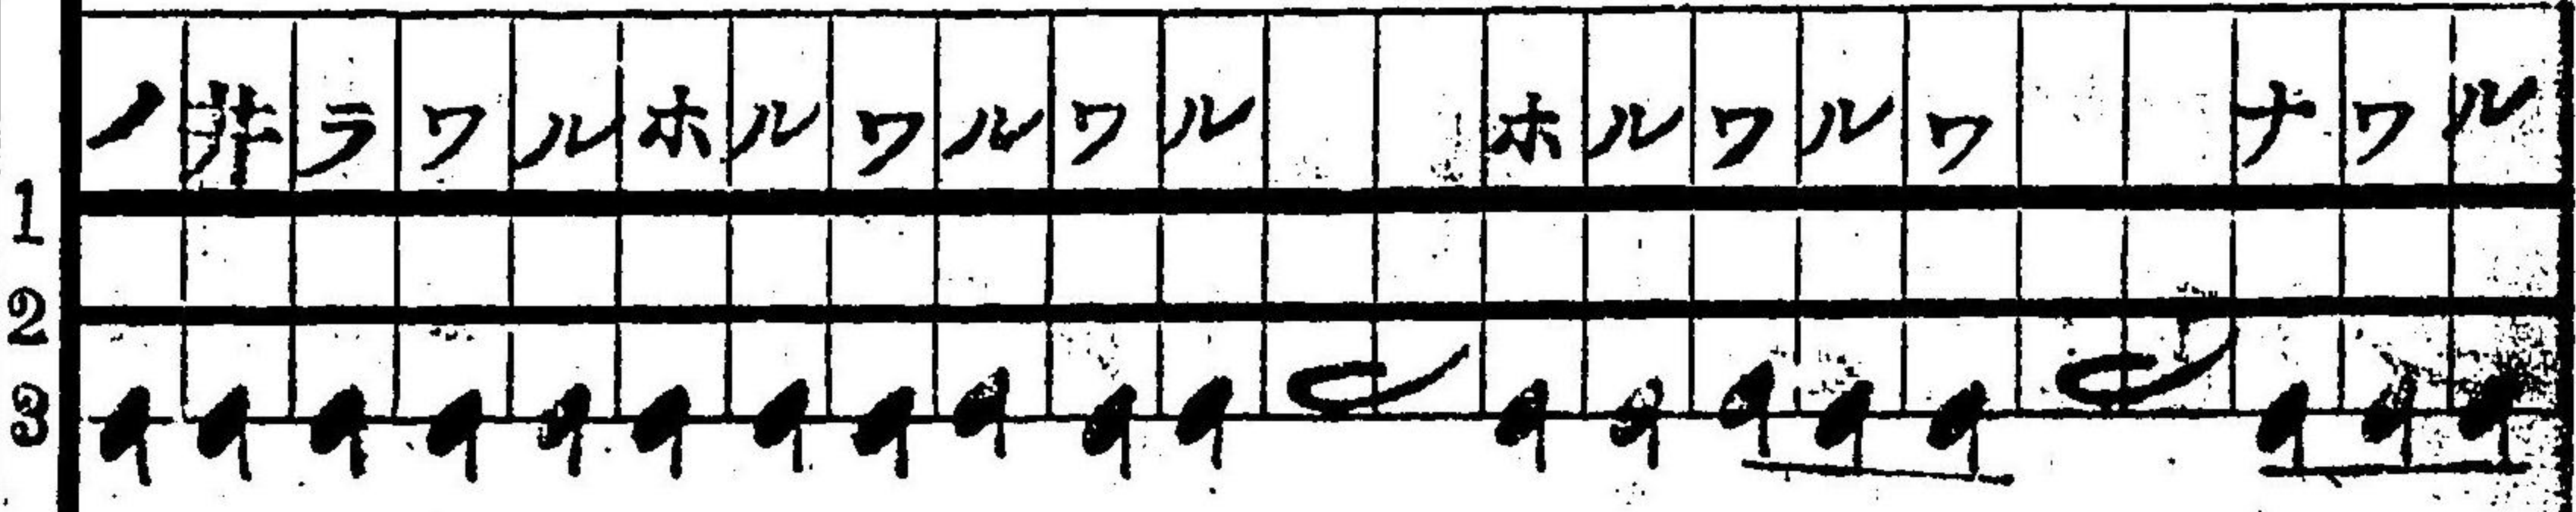 ノ井ラワルホルワルワル ホルワルワ ナワル
1
2
3